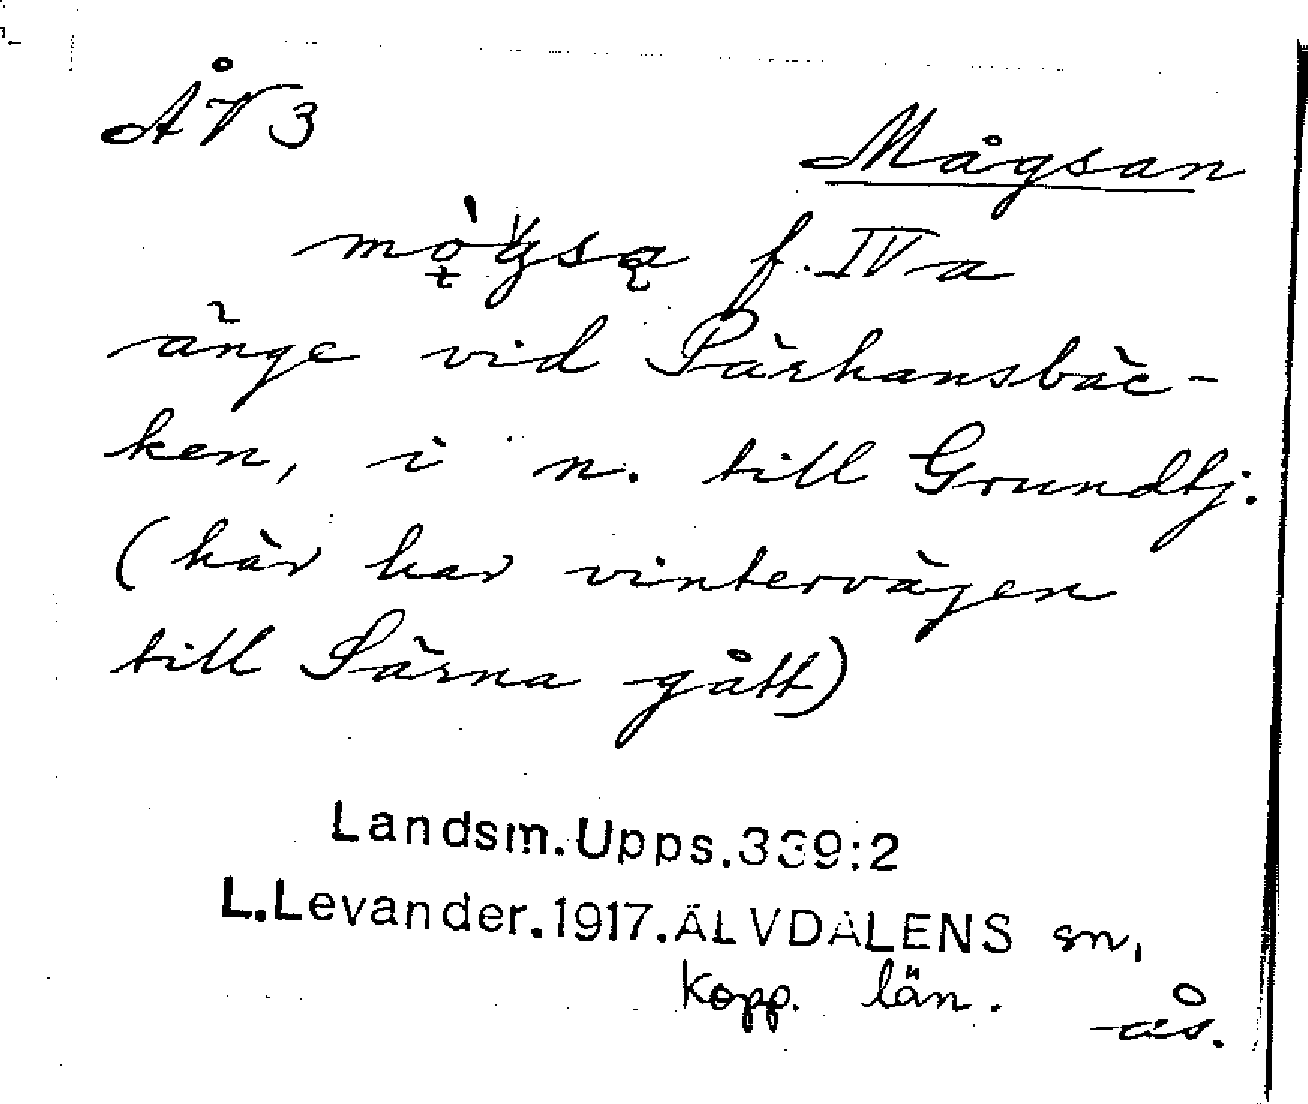 ÅV3
Mågsan
f. IVa
änge vid Pärhansbäc-
ken, i n. till Grundtj.
(här har vintervägen
till Särna gått)
Landsm.Upps.339:2
L.Levander.1917.ÄLVDALENS sn,
Kopp. län.
-ås.